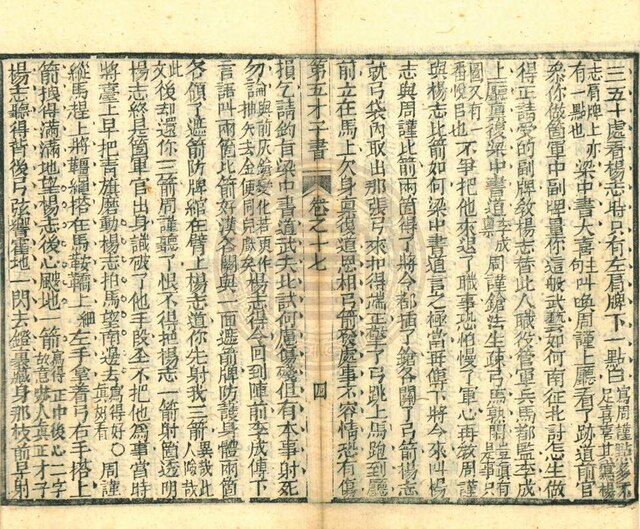 三五十處看楊志時只有左肩牌下一點白寫周謹點多不足喜喜其寫楊
志肩牌上亦有一點也梁中書大喜叫喚周謹上廳看了跡道前官
叅你做箇軍中副牌量你這般武藝如何南征北討怎生做
得正請受的副牌敎楊志替此人職役管軍兵馬都監李成
上廳稟復梁中書道李成周謹鎗法生疎弓馬熟閑
國又有一番慢弓也不爭把他來退了職事恐怕慢了軍心再敎周謹
與楊志比箭如何梁中書道言之極當再傳下將令來叫楊
志與周謹比箭兩箇得了將令都插了鎗各關了弓箭楊志
就弓袋內取出那張弓來扣得端正擎了弓跳上馬跑到廳
前立在馬上欠身稟復道恩相弓箭發處事不容情恐有傷
第五才子書 卷之十七 四
損乞請鈞旨梁中書道武夫比試何慮傷殘但有本事射死
勿論楊志得令回到陣前李成傳下
言語叫兩箇比箭好漢各關與一面遮箭牌防護身體兩箇
各領了遮箭防牌綰在臂上楊志道你先射我三箭異哉此人陰哉此
文後却還你三箭周謹聽了恨不得把楊志一箭射箇透明
楊志終是箇軍官出身識破了他手段全不把他為事當時
將臺上早把青旗磨動楊志拍馬望南邊去寫得好真好看○周謹
縱馬趕上將韁繩搭在馬鞍鞽上細左手拿著弓右手搭上
箭拽得滿滿地望楊志後心颼地一箭寫得正中後心二字故意嚇人真正才子
楊志聽得背後弓弦響霍地一閃去鐙裏藏身那枝箭早射